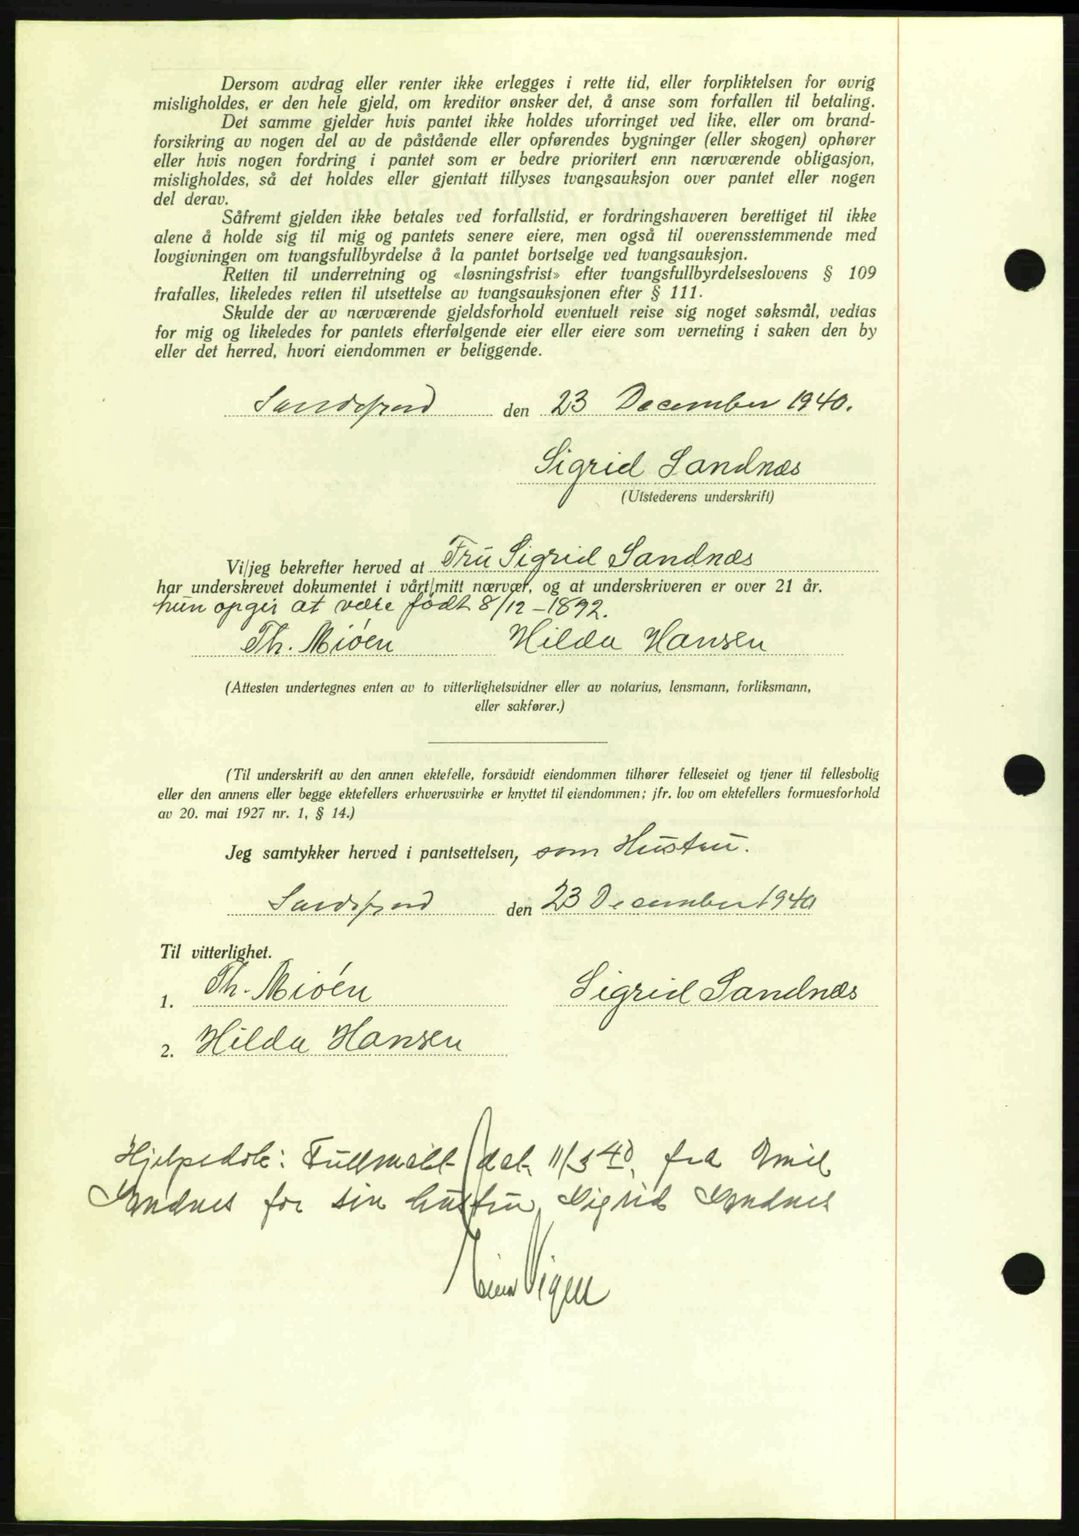 Dersom avdrag eller renter ikke erlegges i rette tid, eller forpliktelsen for øvrig
misligholdes, er den hele gjeld, om kreditor ønsker det, å anse som forfallen til betaling.
Det samme gjelder hvis pantet ikke holdes uforringet ved like, eller om brand-
forsikring av nogen del av de påstående eller opførendes bygninger (eller skogen) ophører
eller hvis nogen fordring i pantet som er bedre prioritert enn nærværende obligasjon,
misligholdes, så det holdes eller gjentatt tillyses tvangsauksjon over pantet eller nogen
del derav.
Såfremt gjelden ikke betales ved forfallstid, er fordringshaveren berettiget til ikke
alene å holde sig til mig og pantets senere eiere, men også til overensstemmende med
lovgivningen om tvangsfullbyrdelse å la pantet bortselge ved tvangsauksjon.
Retten til underretning og «løsningsfrist» efter tvangsfullbyrdelseslovens § 109
frafalles, likeledes retten til utsettelse av tvangsauksjonen efter § 111.
Skulde der av nærværende gjeldsforhold eventuelt reise sig noget søksmål, vedtas
for mig og likeledes for pantets efterfølgende eier eller eiere som verneting i saken den by
eller det herred, hvori eiendommen er beliggende.
den 23 December 1940.
Sigrid Sandnæs
(Utstederens underskrift)
Vi/jeg bekrefter herved at Fru Sigrid Sandnæs
har underskrevet dokumentet i vårt/mitt nærvær, og at underskriveren er over 21 år.
hun opgir at være født 8/12-1892.
Th. Miöen Hilda Hansen
(Attesten undertegnes enten av to vitterlighetsvidner eller av notarius, lensmann, forliksmann,
eller sakfører.)
(Til underskrift av den annen ektefelle, forsåvidt eiendommen tilhører felleseiet og tjener til fellesbolig
eller den annens eller begge ektefellers erhvervsvirke er knyttet til eiendommen; jfr. lov om ektefellers formuesforhold
av 20. mai 1927 nr. 1, § 14.)
Jeg samtykker herved i pantsettelsen, som Hustru.
den 23 December 1940
Til vitterlighet.
1. Th. Miöen Sigrid Sandnæs
2. Hilda Hansen
Hjelpedok: Fullmakt dat. 11/3 40, fra Emil
Sandnes for sin hustru, Sigrid Sandnes